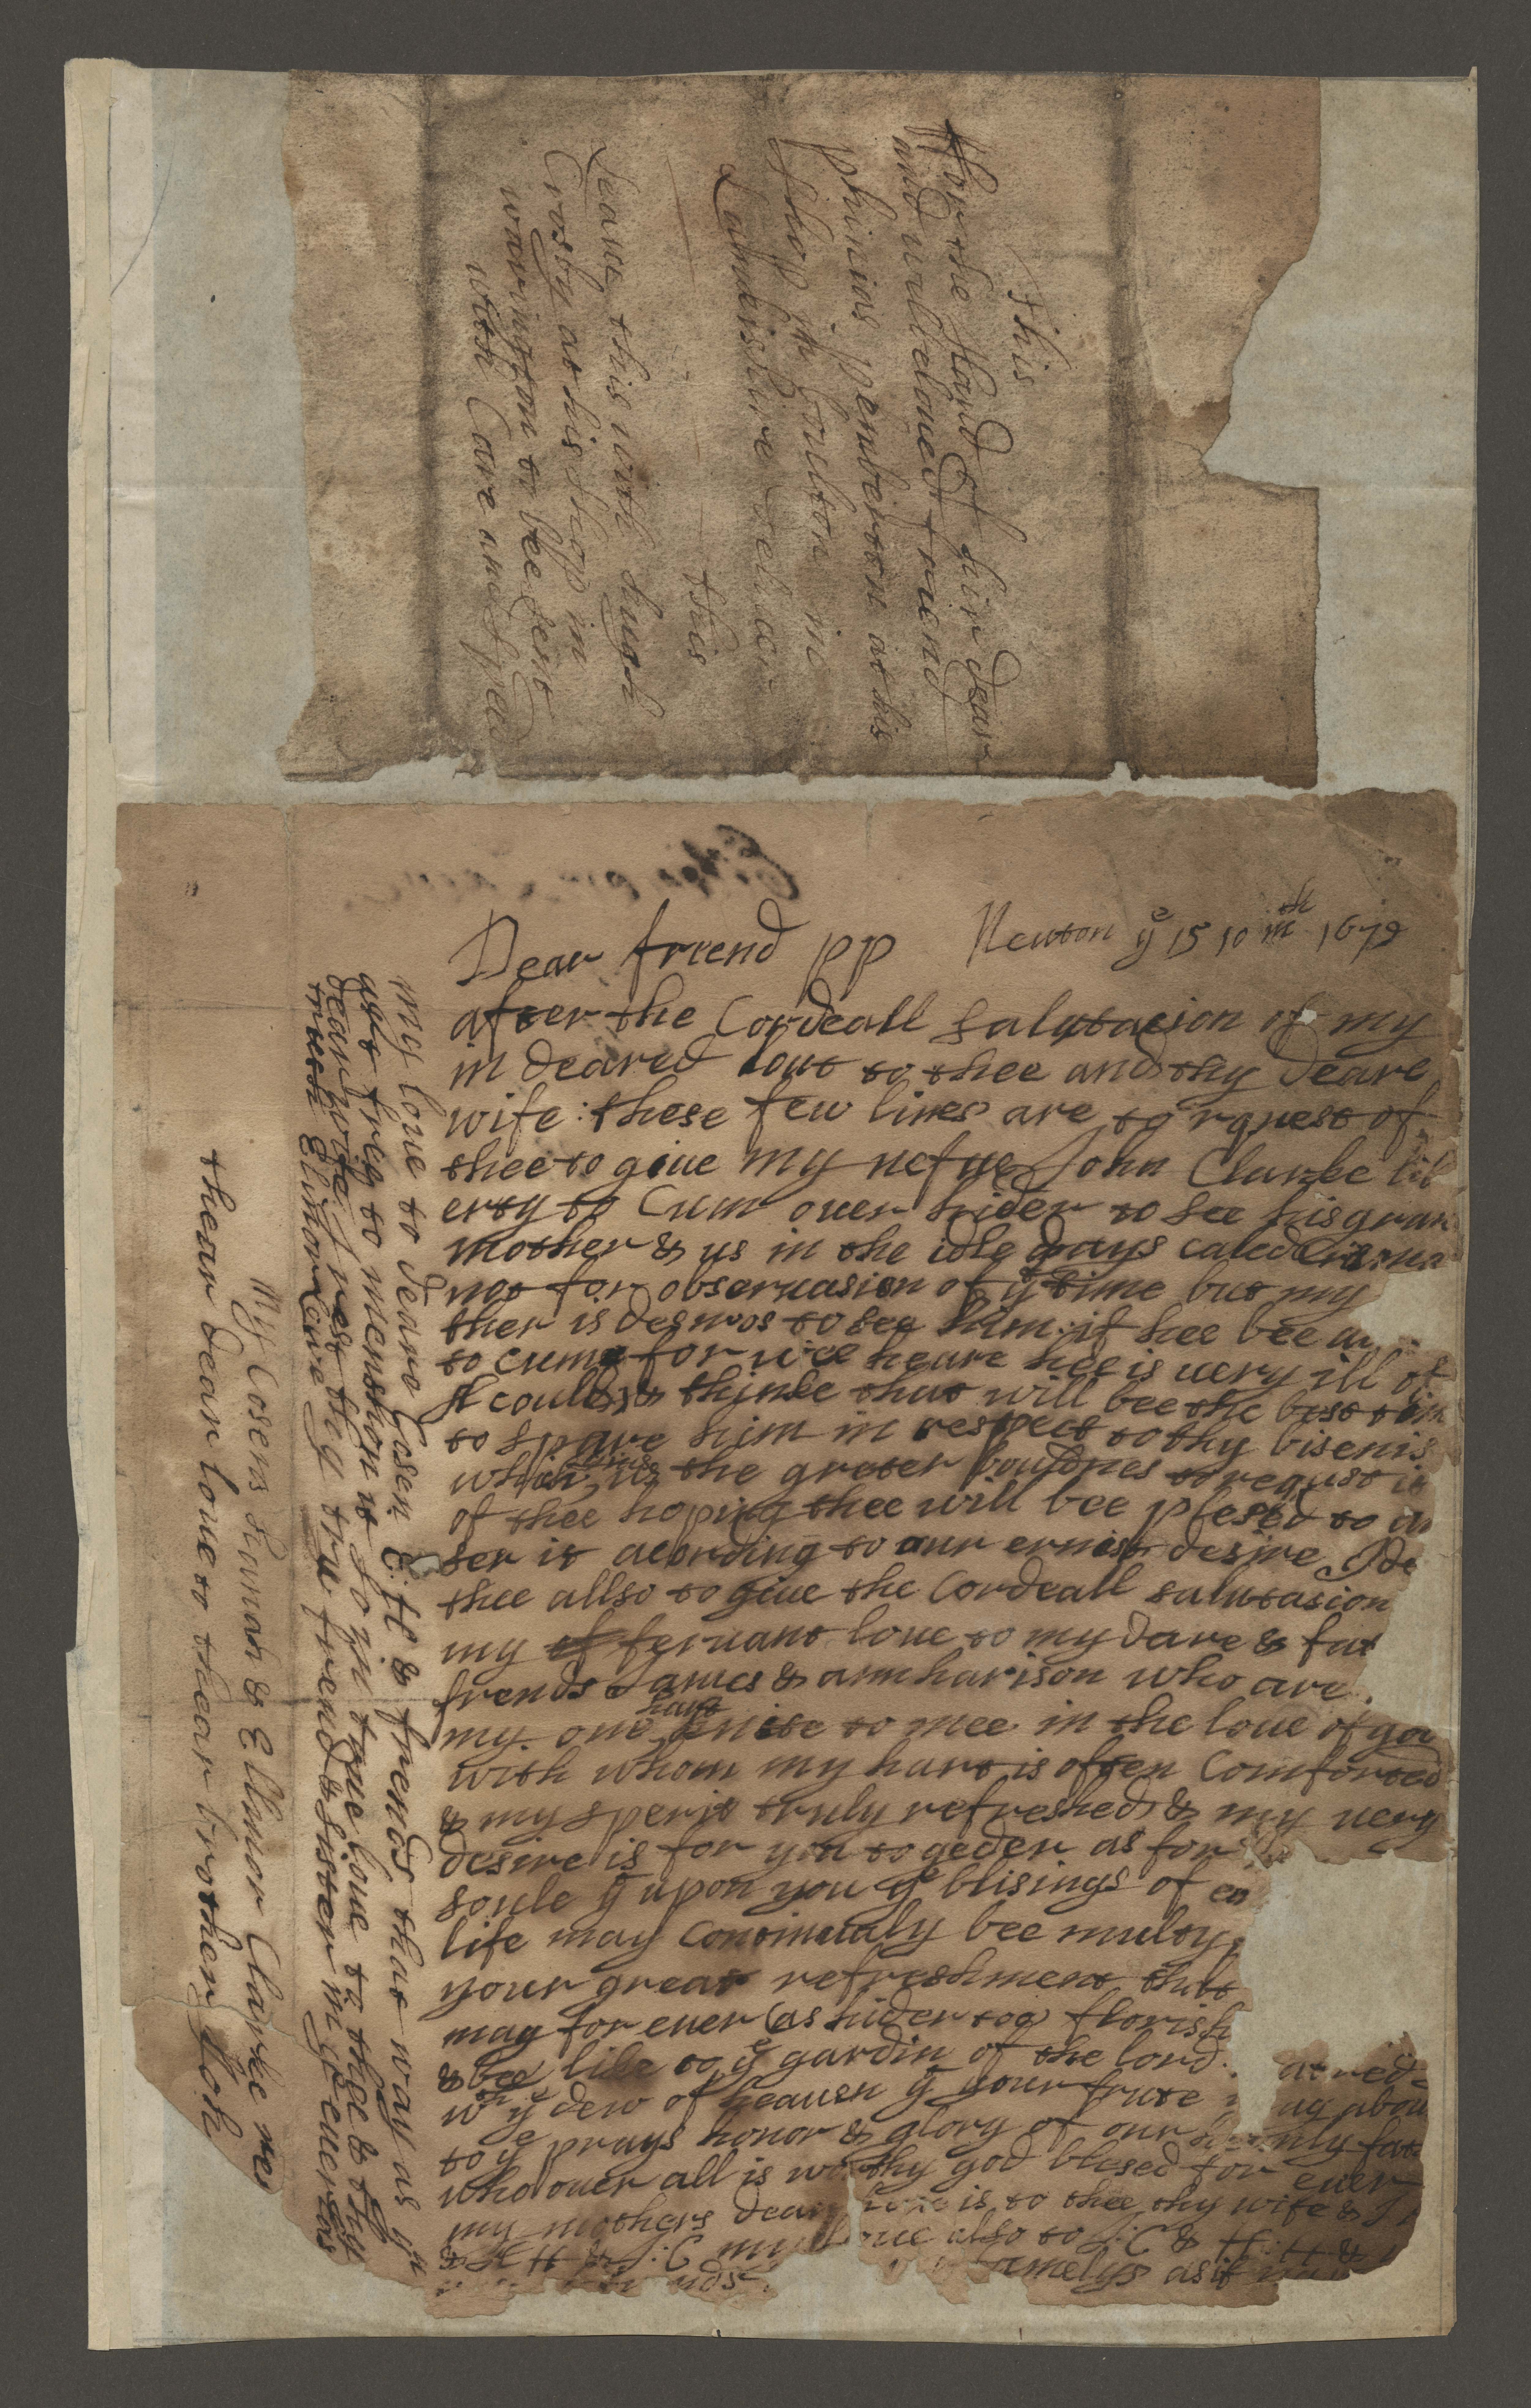 This
ffor the hand of hir dear
and wellbeloued friend
phinias pemberton at his
shop in boulton in
Lankershire deliver
this
Leave this with hugh
Crosby at his shop in
warington to bee sent
with Care and speed
Newton ye 15 10th m 1672
Dear friend pp
after the Cordeall salutacion of my
in deared loue to thee and thy deare
wife : these few lines are to rquest of
thee to giue my nefue John Clarke lib
erty to Cum ouer hider to see his gran
mother & us in the idle days caled Crisma
not for obseruasion of ye time but my
ther is desiros to see him : if hee bee
to cum for wee heare hee is uery ill of
A could; & thinke that will bee the best tim
to spare him in respect to thy bisenis
which the greter bouldnes to requst it
of thee hoping thee will bee plesed to
ser it acording to our ernist desire I de
thee allso to giue the Cordeall salutasion
my feruant loue to my dare &
frends James & ann harison who are
my one hart to mee in the loue of god
with whom my hart is often Comforted
& my sperit truly refreshed & my uery
desire is for you togeder as for
soule yt upon you ye blisings of
life may Continualy bee multy
your great refreshment that
may for euer (as hidertoo) florish
& bee like to ye gardin of the lord.
wth ye dew of heauen yt your frute abou
to ye prays honor & glory of our
who ouer all is worthy god blesed for euer
my mothers dear loue is to thee thy wife &
J:C my loue also to J:C & H:H &
nds amelys as if
my loue to deare Cosen E:H & frends that way as yu
art free to menshon it so in true loue to thee & thy
dear wife J rest thy tru frend & sister in ye euerlas
treth Elinor Lowe
My Cosens hanah & Ellinor Clarke
thear dear loue to thear brother Joh